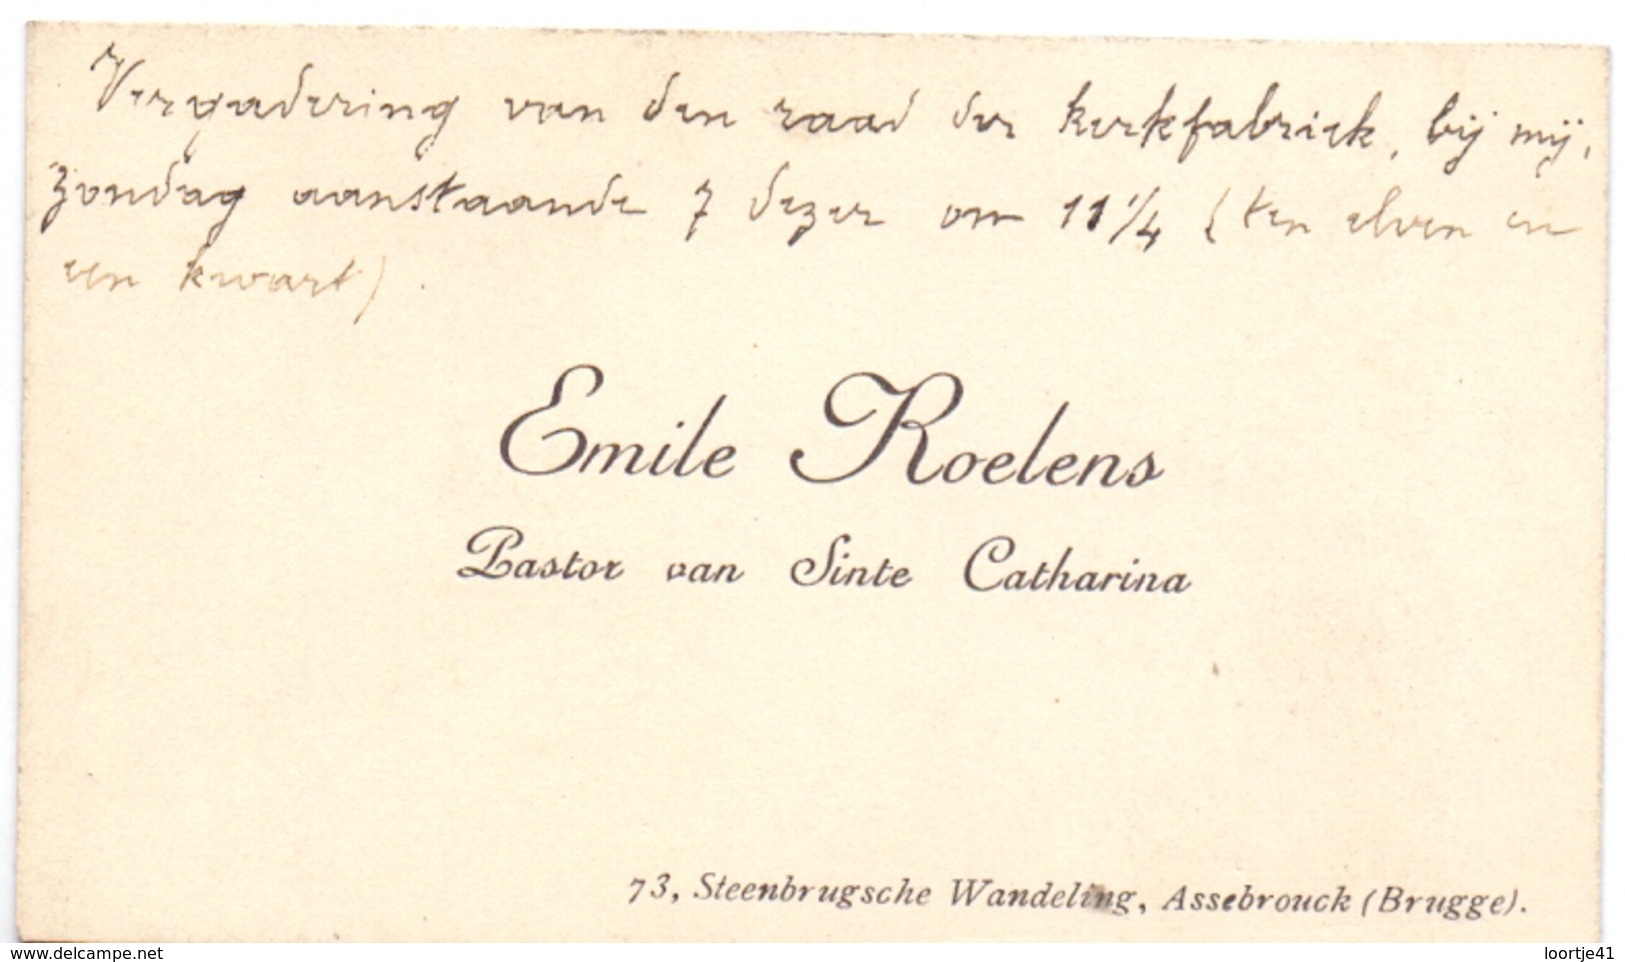 Vergadering van den raad der kerkfabriek, bij mij,
zondag aanstaande 7 dezer om 11 1/4 (ten elven en
een kwart).
Emile Roelens
Pastor van Sinte Catharina
73, Steenbrugsche Wandeling, Assebrouck (Brugge).
www.delcampe.net
loortje41